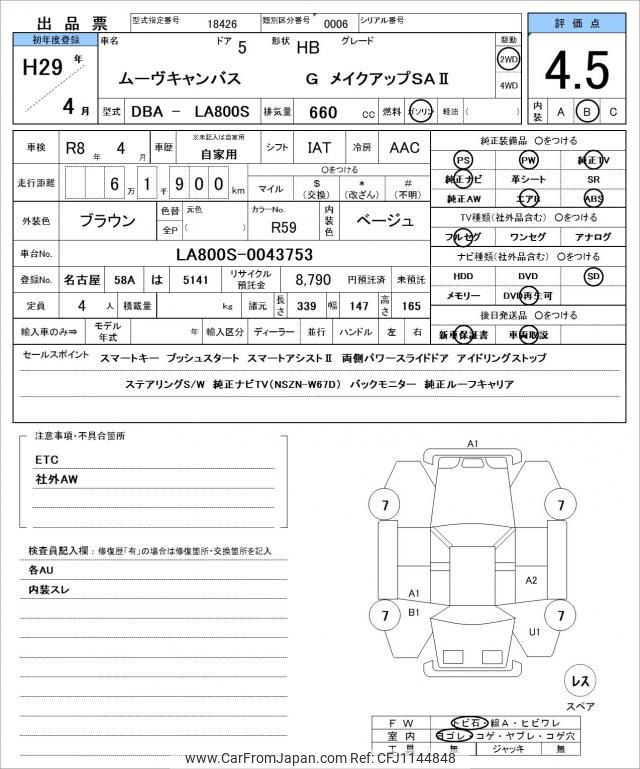 出品票 型式指定番号 18426 類別区分番号 0006 シリアル番号
評価点
4.5
内装 A B C
初年度登録
H29 年
4 月
車名 ドア 5 形状 HB グレード 駆動
ムーヴキャンバス G メイクアップSAⅡ
2WD
4WD
型式 DBA － LA800S 排気量 660 cc 燃料 ガソリン 軽油 ( )
車検 R8 年 4 月 車歴 ※未記入は自家用 自家用 シフト IAT 冷房 AAC
走行距離 6 万 1 千 9 0 0 km
〇をつける
マイル $ (交換) * (改ざん) # (不明)
外装色 ブラウン 色替 元色 全P ( ) カラーNo. R59 内装色 ベージュ
車台No. LA800S-0043753
登録No. 名古屋 58A は 5141 リサイクル預託金 8,790 円預託済 未預託
定員 4 人 積載量 kg 諸元 長さ 339 幅 147 高さ 165
輸入車のみ⇒ モデル年式 年 輸入区分 ディーラー 並行 ハンドル 左 右
純正装備品 〇をつける
PS PW 純正TV
純正ナビ 革シート SR
純正AW エアB ABS
TV種類(社外品含む) 〇をつける
フルセグ ワンセグ アナログ
ナビ種類(社外品含む) 〇をつける
HDD DVD SD
メモリー DVD再生可
後日発送品 〇をつける
新車保証書 車両取説
セールスポイント スマートキー プッシュスタート スマートアシストⅡ 両側パワースライドドア アイドリングストップ
ステアリングS/W 純正ナビTV(NSZN-W67D) バックモニター 純正ルーフキャリア
注意事項・不具合箇所
ETC
社外AW
検査員記入欄：修復歴「有」の場合は修復箇所・交換箇所を記入
各AU
内装スレ
A1
7
7
A2
A1
B1
7
7
U1
レス
スペア
FW トビ石・線A・ヒビワレ
室内 ヨゴレ・コゲ・ヤブレ・コゲ穴
工具 無 ジャッキ 無
www.CarFromJapan.com Ref: CFJ1144848